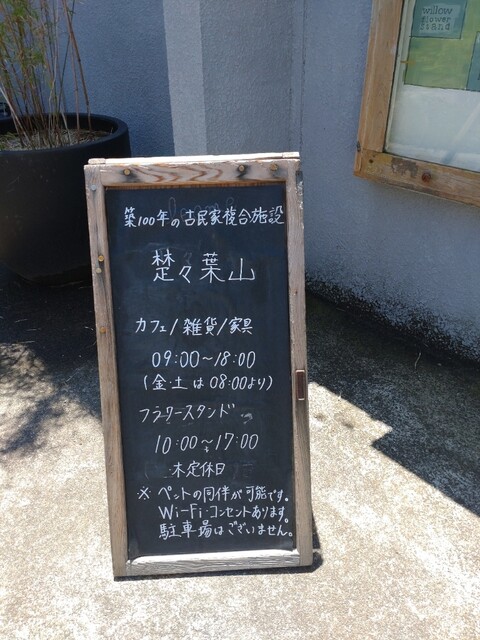 willow
flower
stand
築100年の古民家複合施設
楚々葉山
カフェ/雑貨/家具
09:00〜18:00
(金・土は08:00より)
フラワースタンド
10:00〜17:00
木定休日
※ペットの同伴が可能です。
Wi-Fi・コンセントあります。
駐車場はございません。